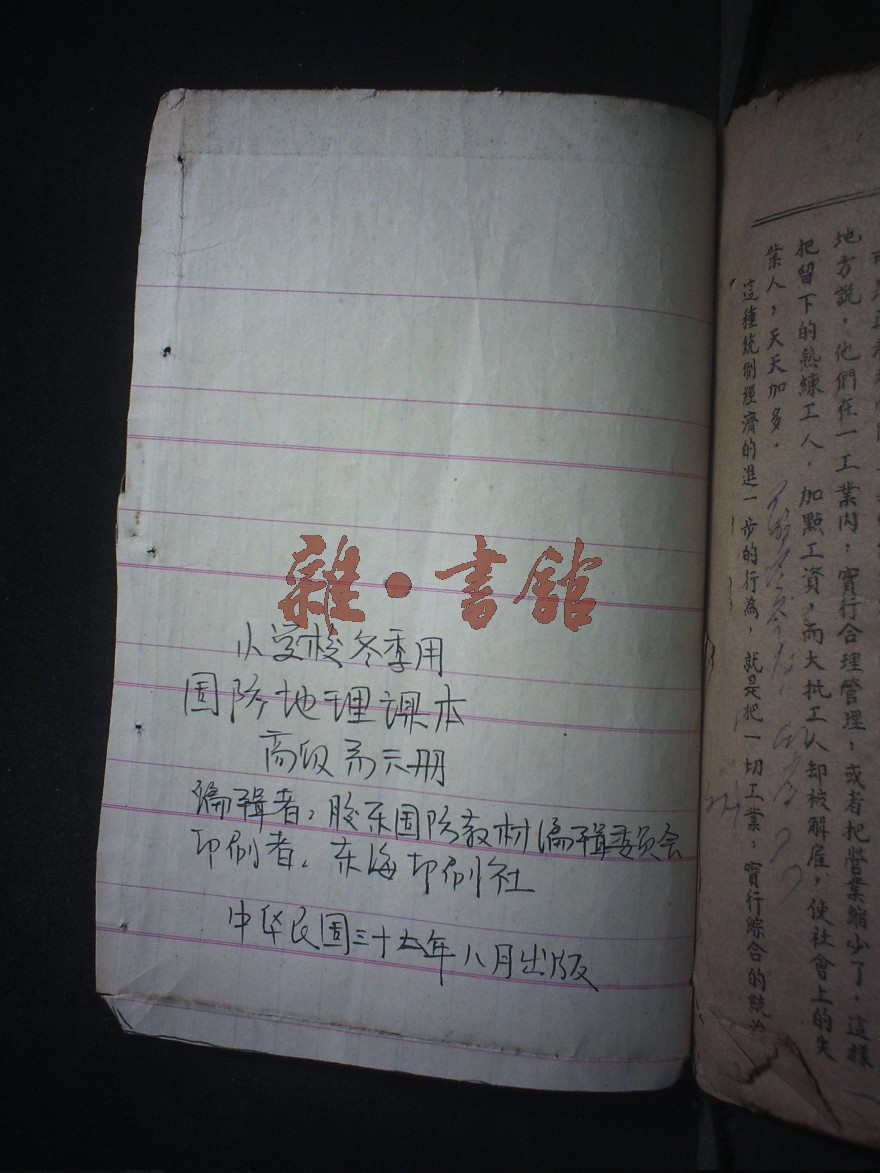 雜・書館
小学校冬季用
国防地理课本
册
编辑者，胶东国防教材编辑委员会
印刷者，东海印刷社
中华民国三十五年八月出版
地方說，他們在一工業内，實行合理管理，或者把營業縮少了，這樣
把留下的熟練工人，加點工資，而大批工人却被解雇，使社會上的失
業人，天天加多。
這種統制經濟的進一步的行為，就是把一切工業，實行綜合的統